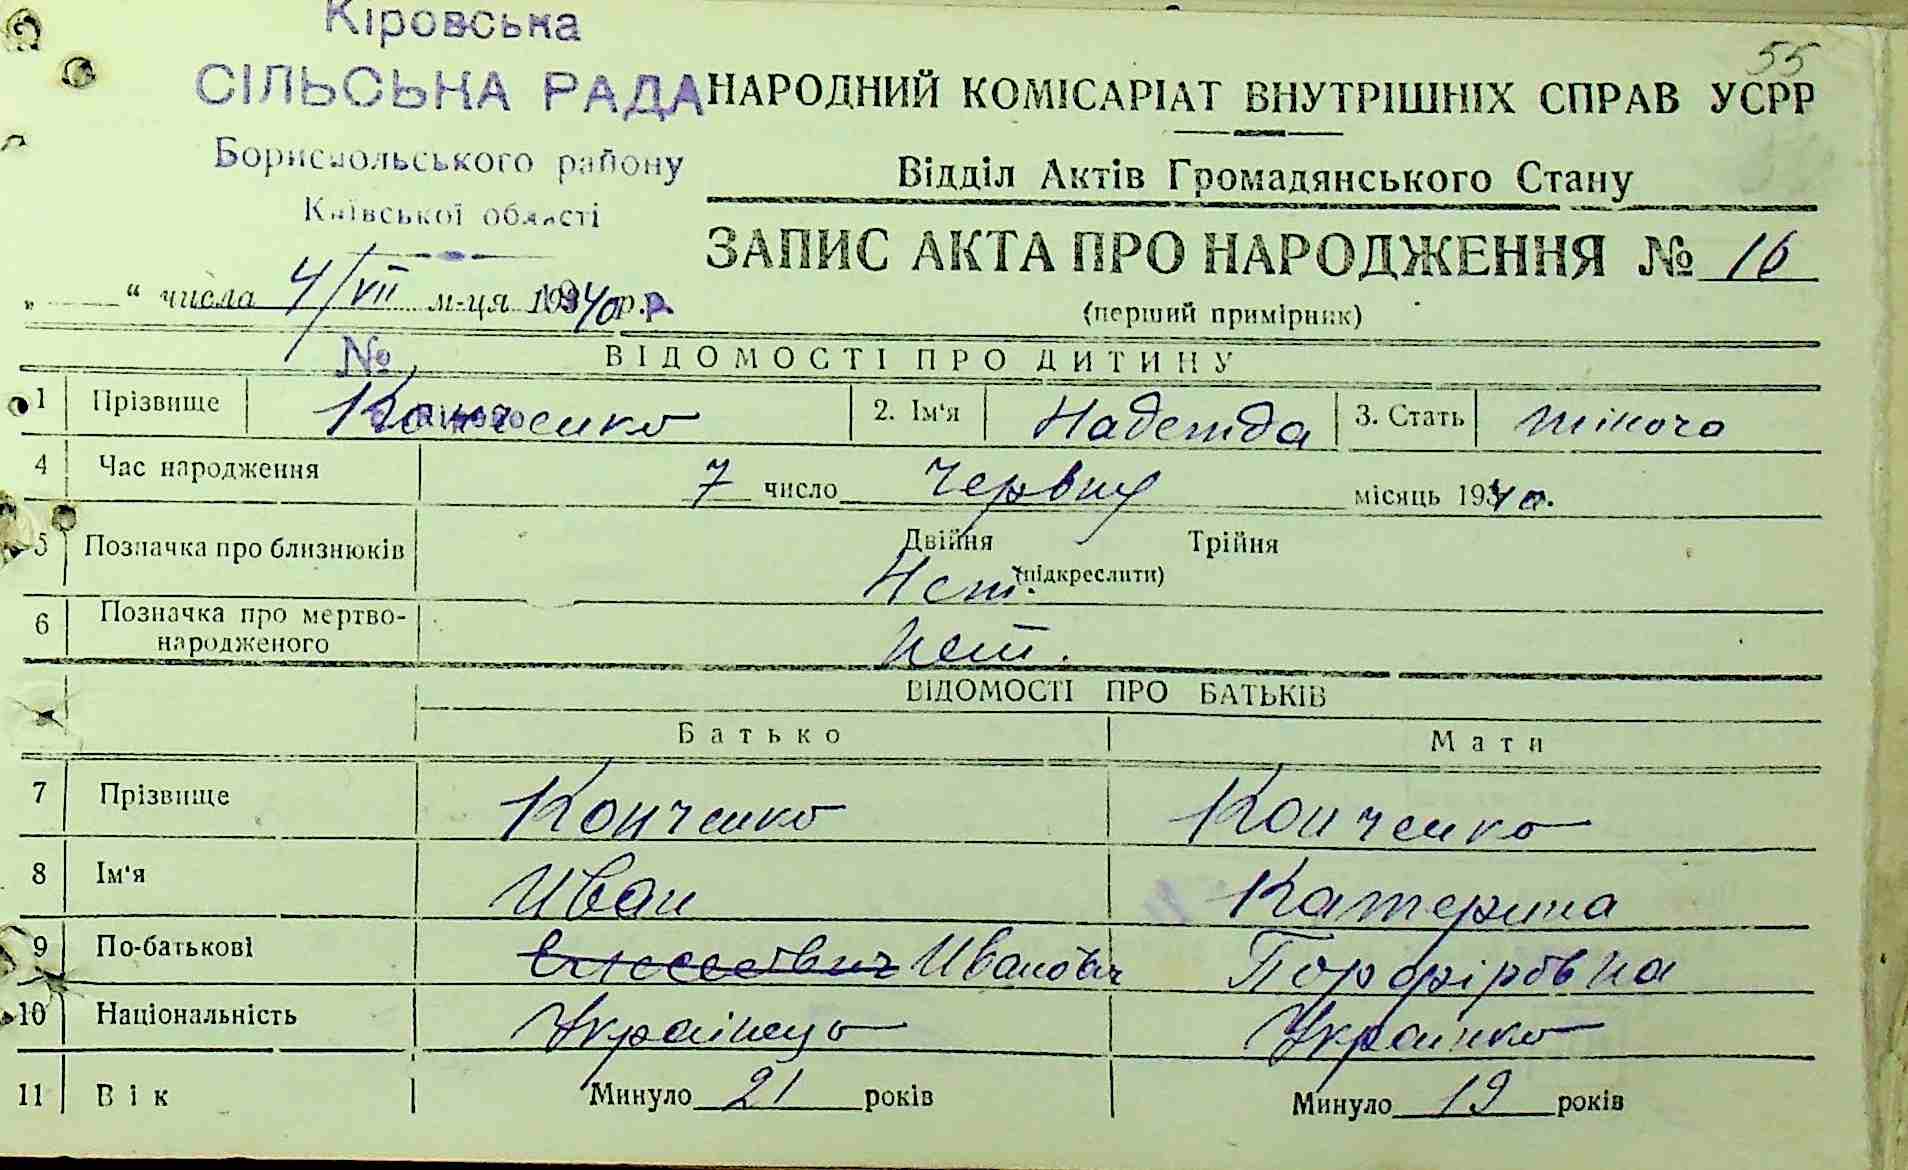 Кіровська
СІЛЬСЬКА РАДА
Бориспольського району
Київської області
55
НАРОДНИЙ КОМІСАРІАТ ВНУТРІШНІХ СПРАВ УСРР
Відділ Актів Громадянського Стану
ЗАПИС АКТА ПРО НАРОДЖЕННЯ № 16
(перший примірник)
„ “ числа 4/VII м-ця 1940 р.
№
ВІДОМОСТІ ПРО ДИТИНУ
1 Прізвище Конченко 2. Ім'я Надежда 3. Стать жіноча
4 Час народження 7 число червня місяць 1940.
5 Позначка про близнюків Двійня Трійня
(підкреслити)
Нет.
6 Позначка про мертво-
народженого Нет.
ВІДОМОСТІ ПРО БАТЬКІВ
Батько Мати
7 Прізвище Конченко Конченко
8 Ім'я Иван Катерина
9 По-батькові Иванович Порфірівна
10 Національність Українець Украинка
11 Вік Минуло 21 років Минуло 19 років